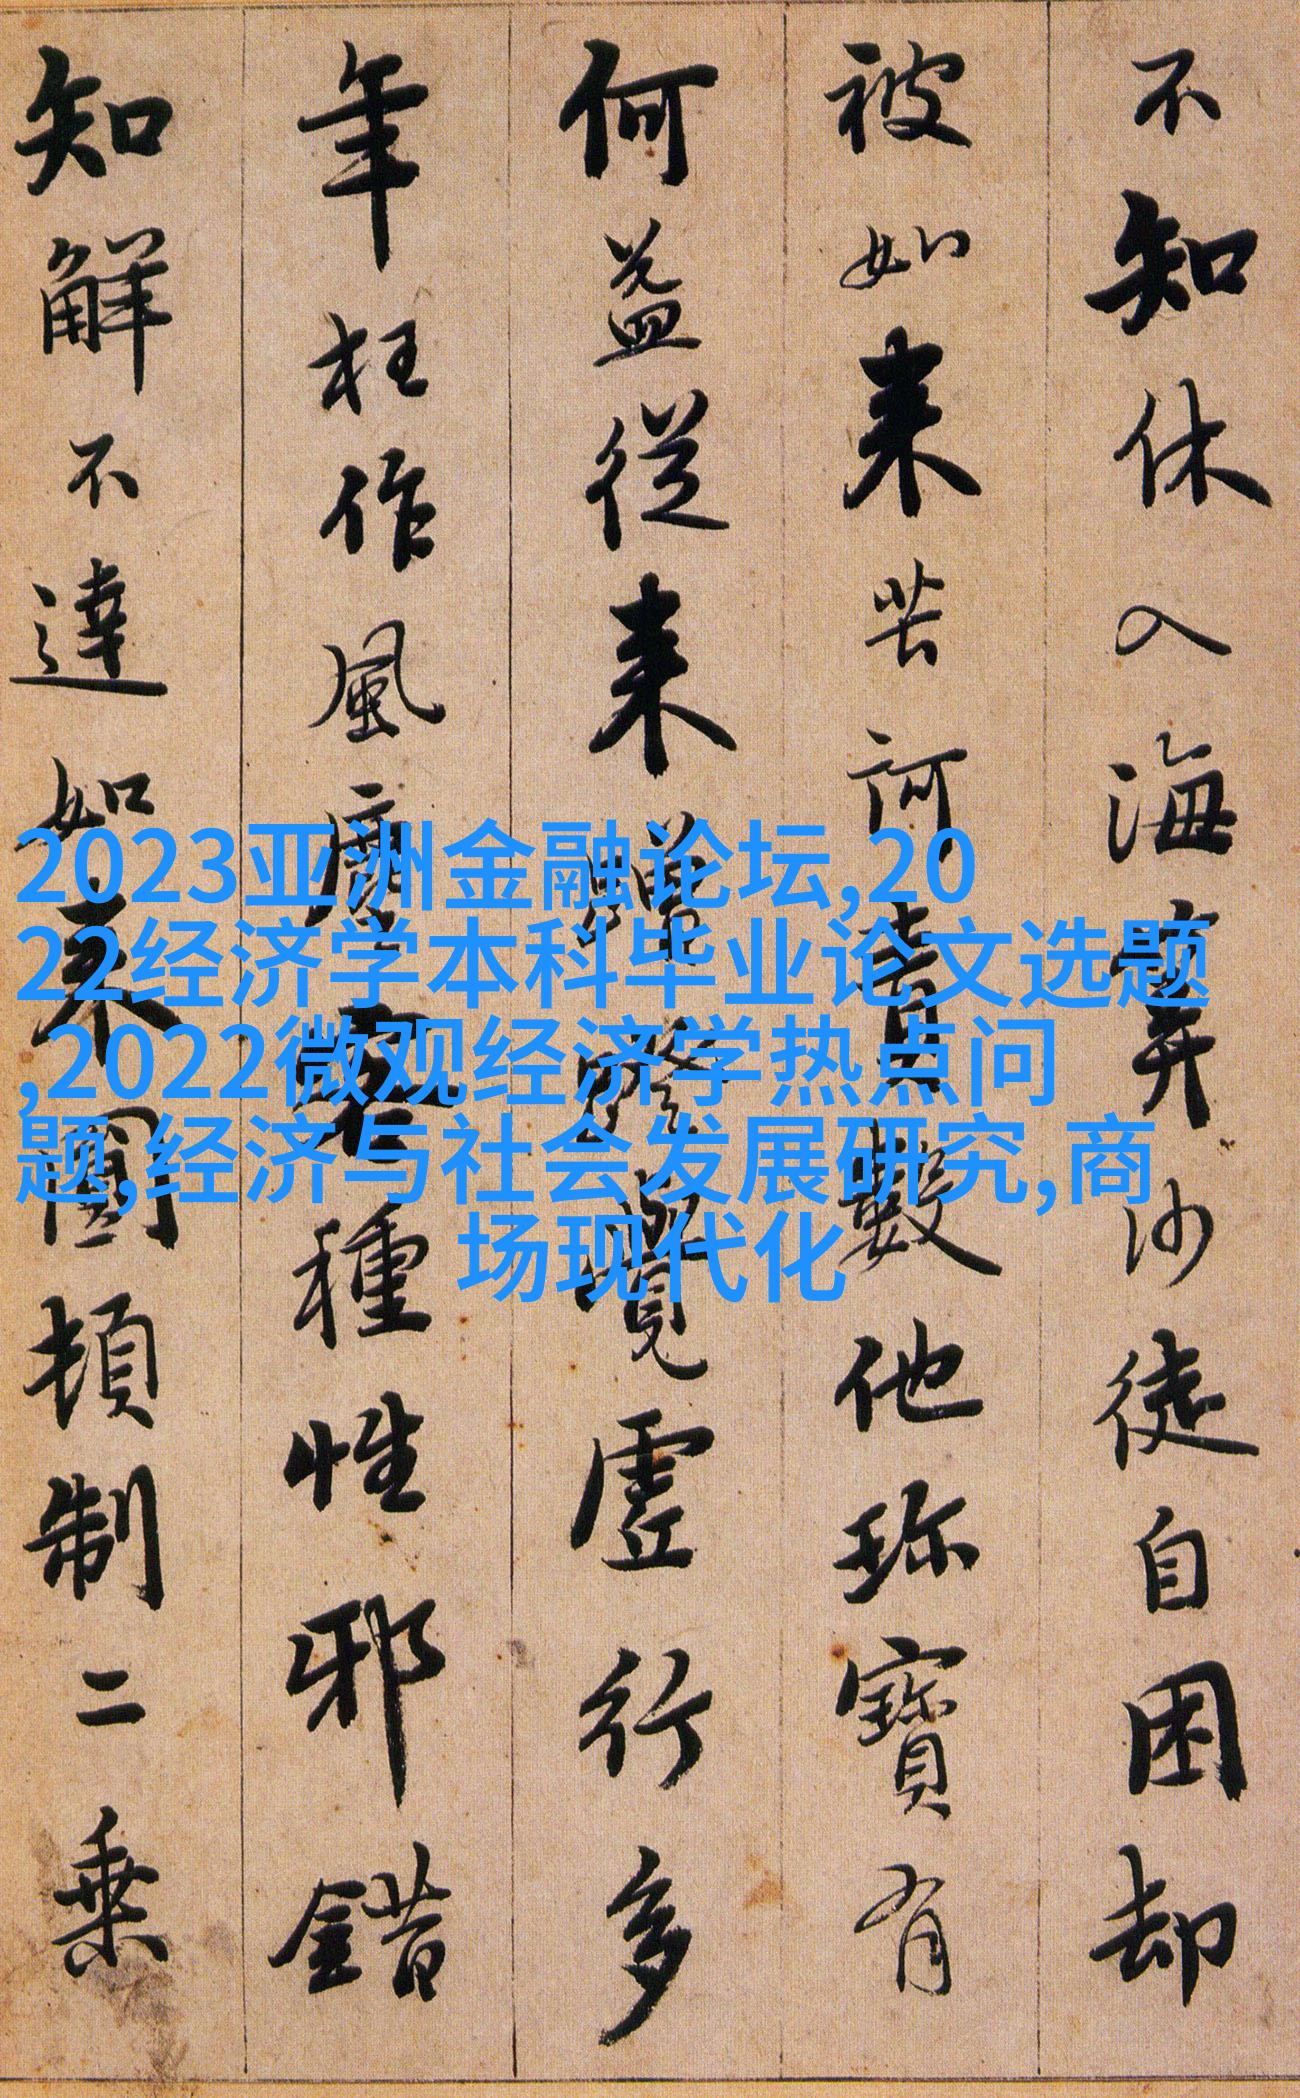 不知休入海筭沙徒自困却
被如来苦訶責數他珍寶有
何益從来蹭蹬覺虛行多
年枉作風塵客種性邪錯
知解不達如来圓頓制二乗
2023亚洲金融论坛,20
22经济学本科毕业论文选题
,2022微观经济学热点问
题,经济与社会发展研究,商
场现代化